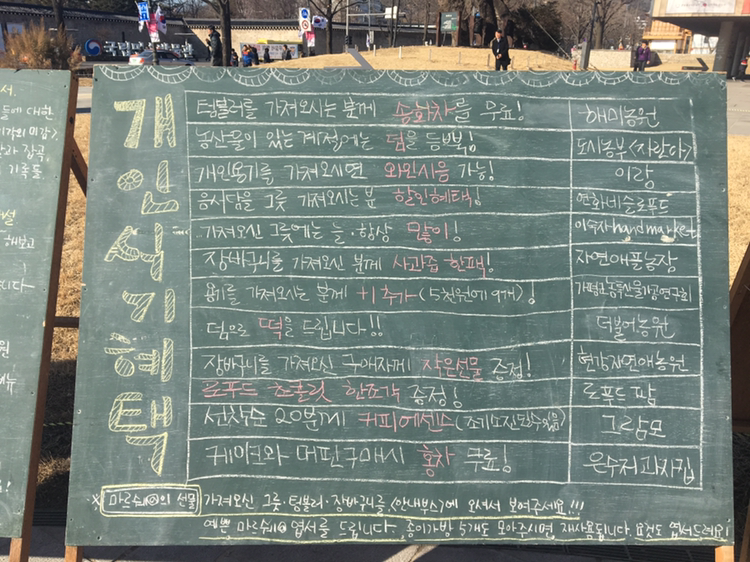 개인식기혜택
텀블러를 가져오시는 분께 송화차를 무료! 해미농원
농산물이 있는 계절에는 덤을 듬뿍! 도시농부<자란다>
개인용기를 가져오시면 와인시음 가능! 이랑
음식담을 그릇 가져오시는 분 할인혜택! 연화네슬로푸드
가져오신 그릇에는 늘·항상 많이! 이숙자handmarket
장바구니를 가져오신 분께 사과즙 한팩! 자연애플농장
용기를 가져오시는 분께 +1 추가 (5천원에 9개)!
덤으로 떡을 드립니다!! 더불어농원
장바구니를 가져오신 구매자께 작은선물 증정! 자연애농원
로푸드 초콜릿 한조각 증정! 로푸드 팜
선착순 20분께 커피에센스 (조기소진될수있음) 그람모
케이크와 머핀구매시 홍차 무료! 은수저과자집
※ 마르쉐@의 선물 가져오신 그릇·텀블러·장바구니를 <안내부스>에 오셔서 보여주세요!!!
예쁜 마르쉐@ 엽서를 드립니다. 종이가방 5개도 모아주시면 재사용됩니다. 요것도 엽서드려요!